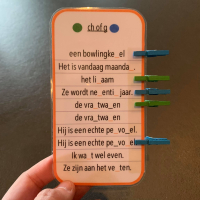 ch of g
een bowlingke_el
Het is vandaag maanda_.
het li_aam
Ze wordt ne_enti_jaar.
de vra_twa_en
de vra_twa_en
Hij is een echte pe_vo_el.
Hij is een echte pe_vo_el.
Ik wa_t wel even.
Ze zijn aan het ve_ten.